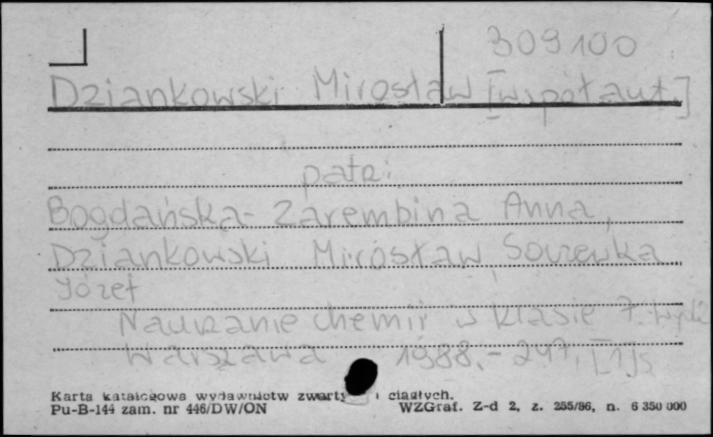 309100
Dziankowski Mirosław [współaut.]
patrz:
Bogdańska-Zarembina Anna,
Dziankowski Mirosław, Soczewka
Józef
Nauczanie chemii w klasie 7. Wyd.
Warszawa 1988. - 247, [1]s
Karta katalogowa wydawnictw zwartych i ciągłych.
Pu-B-144 zam. nr 446/DW/ON
WZGraf. Z-d 2, z. 255/86, n. 6 350 000